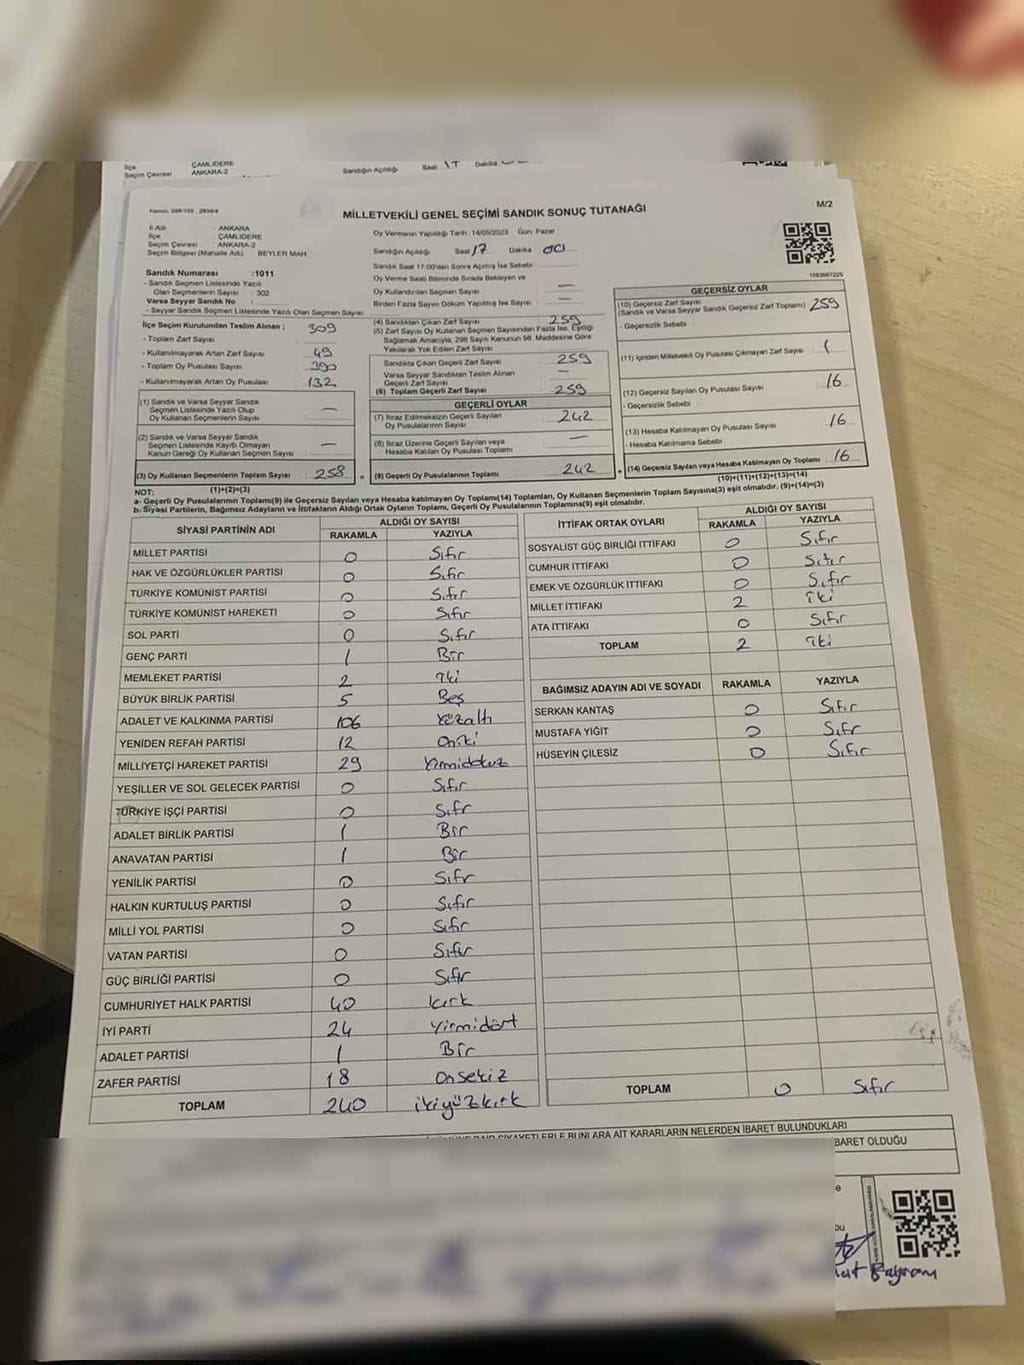 İlçe ÇAMLIDERE
Seçim Çevresi ANKARA-2
Sandığın Açıldığı Saat 17 Dakika
M/2
MİLLETVEKİLİ GENEL SEÇİMİ SANDIK SONUÇ TUTANAĞI
İl Adı : ANKARA
İlçe : ÇAMLIDERE
Seçim Çevresi : ANKARA-2
Seçim Bölgesi (Mahalle Adı) : BEYLER MAH
Sandık Numarası :1011
- Sandık Seçmen Listesinde Yazılı
Olan Seçmenlerin Sayısı : 302
Varsa Seyyar Sandık No :
- Seyyar Sandık Seçmen Listesinde Yazılı Olan Seçmen Sayısı
İlçe Seçim Kurulundan Teslim Alınan ;
- Toplam Zarf Sayısı 309
- Kullanılmayarak Artan Zarf Sayısı 49
- Toplam Oy Pusulası Sayısı 390
- Kullanılmayarak Artan Oy Pusulası 132
(1) Sandık ve Varsa Seyyar Sandık
Seçmen Listesinde Yazılı Olup
Oy Kullanan Seçmenlerin Sayısı —
(2) Sandık ve Varsa Seyyar Sandık
Seçmen Listesinde Kayıtlı Olmayan
Kanun Gereği Oy Kullanan Seçmen Sayısı —
(3) Oy Kullanan Seçmenlerin Toplam Sayısı 258
(1)+(2)=(3)
Oy Vermenin Yapıldığı Tarih : 14/05/2023 Gün: Pazar
Sandığın Açıldığı Saat 17 Dakika 00
Sandık Saat 17:00'den Sonra Açılmış İse Sebebi
Oy Verme Saati Bitiminde Sırada Bekleyen ve
Oy Kullandırılan Seçmen Sayısı —
Birden Fazla Sayım Döküm Yapılmış İse Sayısı —
(4) Sandıktan Çıkan Zarf Sayısı 259
(5) Zarf Sayısı Oy Kullanan Seçmen Sayısından Fazla İse, Eşitliği
Sağlamak Amacıyla, 298 Sayılı Kanunun 98. Maddesine Göre
Yakılarak Yok Edilen Zarf Sayısı
Sandıkta Çıkan Geçerli Zarf Sayısı 259
Varsa Seyyar Sandıktan Teslim Alınan
Geçerli Zarf Sayısı —
(6) Toplam Geçerli Zarf Sayısı 259
GEÇERLİ OYLAR
(7) İtiraz Edilmeksizin Geçerli Sayılan
Oy Pusulalarının Sayısı 242
(8) İtiraz Üzerine Geçerli Sayılan veya
Hesaba Katılan Oy Pusulası Toplamı —
(9) Geçerli Oy Pusulalarının Toplamı 242
1093067225
GEÇERSİZ OYLAR
(10) Geçersiz Zarf Sayısı
(Sandık ve Varsa Seyyar Sandık Geçersiz Zarf Toplamı) 259
- Geçersizlik Sebebi
(11) İçinden Milletvekili Oy Pusulası Çıkmayan Zarf Sayısı 1
(12) Geçersiz Sayılan Oy Pusulası Sayısı 16
- Geçersizlik Sebebi
(13) Hesaba Katılmayan Oy Pusulası Sayısı 16
- Hesaba Katılmama Sebebi
(14) Geçersiz Sayılan veya Hesaba Katılmayan Oy Toplamı 16
(10)+(11)+(12)+(13)=(14)
NOT:
a- Geçerli Oy Pusulalarının Toplamı(9) ile Geçersiz Sayılan veya Hesaba katılmayan Oy Toplamı(14) Toplamları, Oy Kullanan Seçmenlerin Toplam Sayısına(3) eşit olmalıdır. (9)+(14)=(3)
b- Siyasi Partilerin, Bağımsız Adayların ve İttifakların Aldığı Ortak Oyların Toplamı, Geçerli Oy Pusulalarının Toplamına(9) eşit olmalıdır.
SİYASİ PARTİNİN ADI ALDIĞI OY SAYISI
RAKAMLA YAZIYLA
MİLLET PARTİSİ 0 Sıfır
HAK VE ÖZGÜRLÜKLER PARTİSİ 0 Sıfır
TÜRKİYE KOMÜNİST PARTİSİ 0 Sıfır
TÜRKİYE KOMÜNİST HAREKETİ 0 Sıfır
SOL PARTİ 0 Sıfır
GENÇ PARTİ 1 Bir
MEMLEKET PARTİSİ 2 iki
BÜYÜK BİRLİK PARTİSİ 5 Beş
ADALET VE KALKINMA PARTİSİ 106 Yüzaltı
YENİDEN REFAH PARTİSİ 12 Oniki
MİLLİYETÇİ HAREKET PARTİSİ 29 Yirmidokuz
YEŞİLLER VE SOL GELECEK PARTİSİ 0 Sıfır
TÜRKİYE İŞÇİ PARTİSİ 0 Sıfır
ADALET BİRLİK PARTİSİ 1 Bir
ANAVATAN PARTİSİ 1 Bir
YENİLİK PARTİSİ 0 Sıfır
HALKIN KURTULUŞ PARTİSİ 0 Sıfır
MİLLİ YOL PARTİSİ 0 Sıfır
VATAN PARTİSİ 0 Sıfır
GÜÇ BİRLİĞİ PARTİSİ 0 Sıfır
CUMHURİYET HALK PARTİSİ 40 kırk
İYİ PARTİ 24 Yirmidört
ADALET PARTİSİ 1 Bir
ZAFER PARTİSİ 18 Onsekiz
TOPLAM 240 ikiyüzkırk
İTTİFAK ORTAK OYLARI ALDIĞI OY SAYISI
RAKAMLA YAZIYLA
SOSYALİST GÜÇ BİRLİĞİ İTTİFAKI 0 Sıfır
CUMHUR İTTİFAKI 0 Sıfır
EMEK VE ÖZGÜRLÜK İTTİFAKI 0 Sıfır
MİLLET İTTİFAKI 2 iki
ATA İTTİFAKI 0 Sıfır
TOPLAM 2 iki
BAĞIMSIZ ADAYIN ADI VE SOYADI RAKAMLA YAZIYLA
SERKAN KANTAŞ 0 Sıfır
MUSTAFA YİĞİT 0 Sıfır
HÜSEYİN ÇİLESİZ 0 Sıfır
TOPLAM 0 Sıfır
ŞİKAYETLERLE BUNLARA AİT KARARLARIN NELERDEN İBARET BULUNDUKLARI
BARET OLDUĞU
Bayram